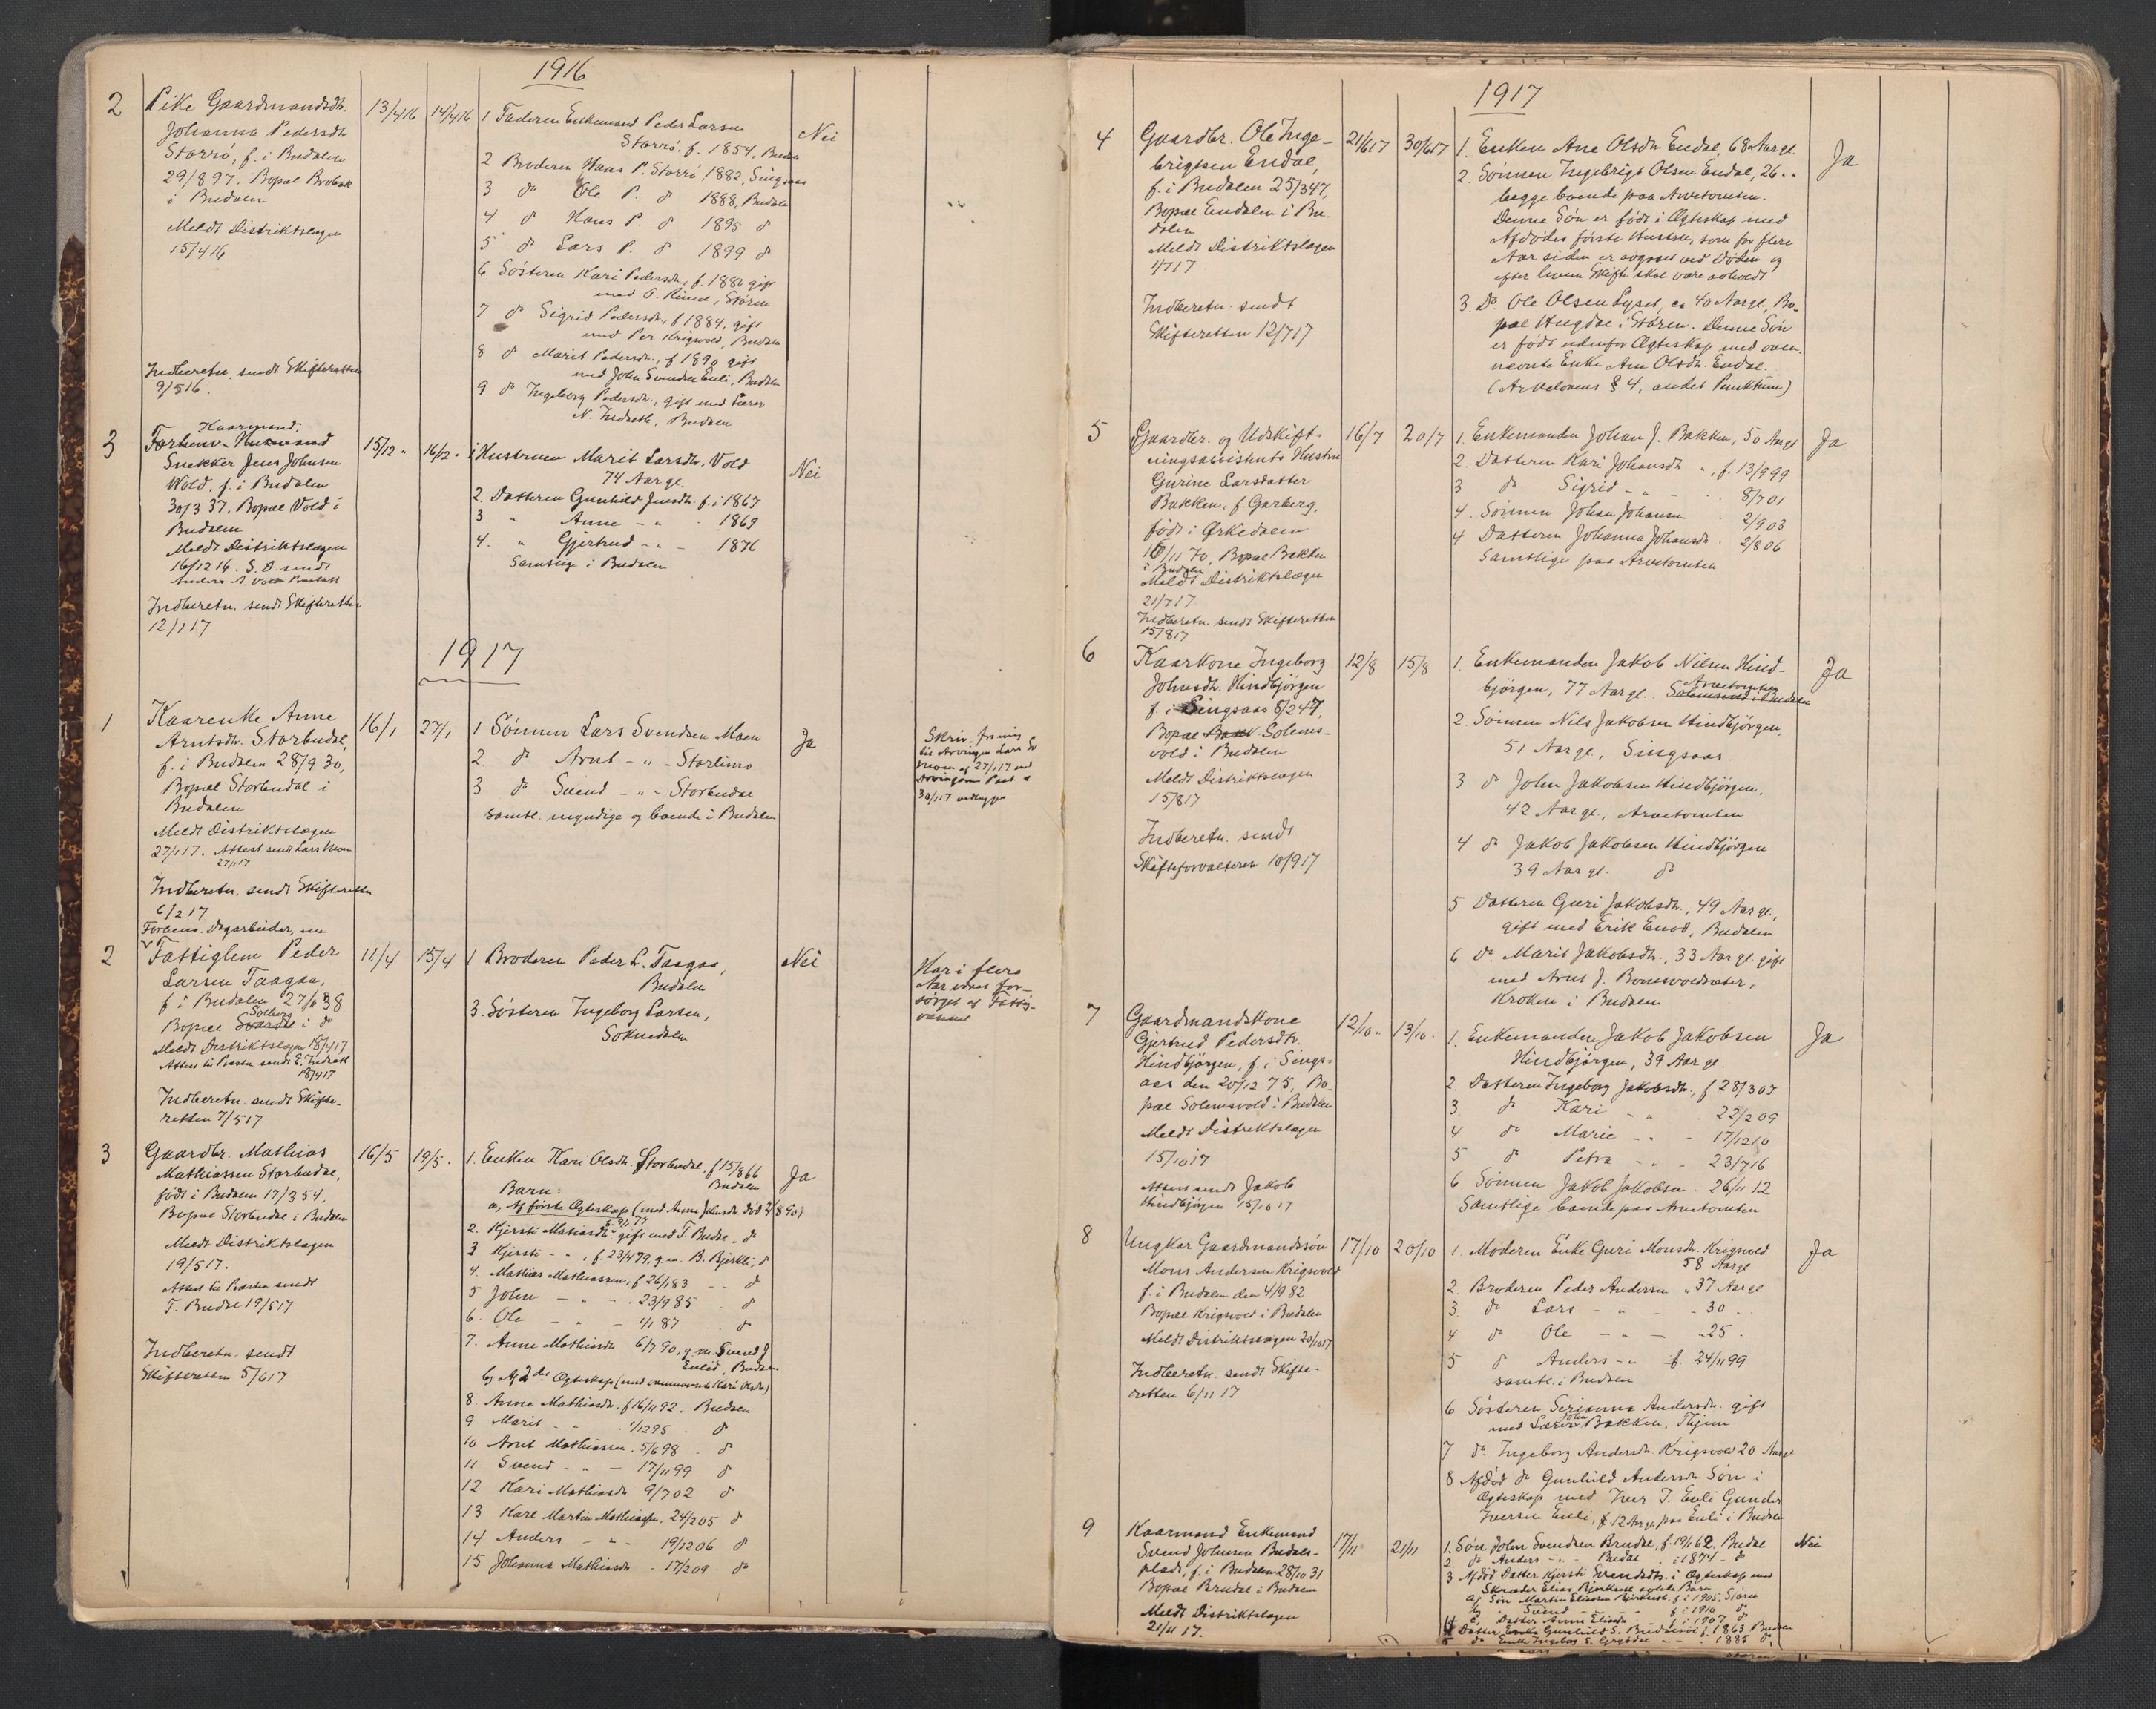 1916
2
Pike Gaardmandsdtr.
Johanna Pedersdtr
Storrö, f. i Budalen
29/8 97. Bopæl Brobak
i Budalen
Meldt Distriktslægen
15/4 16
Indberetn. sendt Skifteretten
9/5 16.
13/4 16
14/4 16
1 Faderen Enkemand Peder Larsen
Storrö. f. 1854, Budalen
2 Broderen Hans P. Storrö, 1882, Singsaas
3 do Ole P. do 1888, Budalen
4 do Hans P. do 1895 do
5 do Lars P. do 1899 do
6 Søsteren Kari Pedersdtr., f. 1886 gift
med O. , Støren
7 do Sigrid Pedersdtr., f 1884, gift
med Per Krigsvold, Budalen
8 do Marit Pedersdtr., f 1890 gift
med John Svendsen Enli, Budalen
9 do Ingeborg Pedersdtr., gift med Lærer
N. Indseth, Budalen
Nei
3
Kaarmand,
Forhenv. Husmand
Snekker Jens Johnsen
Wold, f. i Budalen
30/3 37. Bopæl Vold i
Budalen
Meldt Distriktslægen
16/12 16. S. D. sendt
Anders A. Vold
Indberetn. sendt Skifteretten
12/1 17
15/12 "
16/12 "
1 Hustruen Marit Larsdtr. Vold
74 Aar gl.
2. Datteren Gunhild Jensdtr. f. i 1867
3 " Anne - " - 1869
4. " Gjertrud - " - 1876
Samtlige i Budalen
Nei
1917
1
Kaarenke Anne
Arntsdtr. Storbudal,
f. i Budalen 28/9 30,
Bopæl Storbudal i
Budalen
Meldt Distriktslægen
27/1 17. Attest sendt Lars Moen
27/1 17
Indberetn. sendt Skifteretten
6/2 17
16/1
27/1
1 Sønnen Lars Svendsen Moen
2. do Arnt - " - Storlimo
3 do Svend - " - Storbudal
samtl. myndige og boende i Budalen
Ja
Skriv. fra mig
til Arvingen Lars Sv
Moen af 27/1 17 med
Arvingernes
30/1 17 vedlegges
2
Forhenv. Dagarbeider, nu
Fattiglem Peder
Larsen Taagaa,
f i Budalen 27/11 38
Bopæl Solberg i do
Meldt Distriktslægen 18/4 17
Attest til Præsten sendt E. Indseth
18/4 17
Indberetn. sendt Skifte-
retten 7/5 17
11/4
15/4
1 Broderen Peder L. Taagaa,
Budalen
3. Søsteren Ingeborg Larsen,
Soknedalen
Nei
Har i flere
Aar været for-
sørget af Fattig-
væsenet
3
Gaardbr. Mathias
Mathiassen Storbudal,
født i Budalen 17/3 54,
Bopæl Storbudal i Budalen
Meldt Distriktslægen
19/5 17.
Attest til Præsten sendt
T. Budal 19/5 17
Indberetn. sendt
Skifteretten 5/6 17
16/5
19/5.
1. Enken Kari Olsdtr. Storbudal, f 15/8 66
Budalen
Barn:
a, Af første Ægteskap (med Anne Johnsdtr. død 4/8 90)
2. Kjersti Mathiasdtr. gift med T. Budal - do
3 Kjersti - " - , f 23/4 79, g. m. B. Bjerkli, do
4. Mathias Mathiassen, f 26/1 83 - - do
5 John - " - . 23/9 85 . do
6. Ole - " - 1/1 87 . do
7. Anne Mathiasdtr 6/7 90, g. m. Svend J
Enlid, Budalen
b, Af 2det Ægteskap (med Kari Olsdtr)
8. Anna Mathiasdtr. f 16/11 92. Budalen
9 Marit - " - 1/12 95 . do
10 Arnt Mathiassen . 5/6 98 . do
11 Svend - " - 17/11 99 do
12 Kari Mathiasdtr 9/7 02 do
13 Karl Martin Mathiassen. 24/2 05 do
14 Anders - " - 19/12 06 do
15 Johanna Mathiasdtr. - 17/2 09 do
Ja
1917
4
Gaardbr. Ole Inge-
brigtsen Endal,
f. i Budalen 25/3 47,
Bopæl Endalen i Bu-
dalen
Meldt Distriktslægen
1/7 17
Indberetn. sendt
Skifteretten 12/7 17
21/6 17
30/6 17
1. Enken Ane Olsdtr. Endal, 68 Aar gl.
2. Sønnen Ingebrigt Olsen Endal, 26 "
begge boende paa Arvetomten.
Denne Søn er født i Ægteskap med
Afdødes første Hustru, som for flere
Aar siden er avgaaet ved Døden og
efter hvem Skifte skal være avholdt
3 Do Ole Olsen Lysel, ca 40 Aar gl, Bo-
pæl Hugdal i Støren. Denne Søn
er født udenfor Ægteskap med oven-
nævnte Enke Ane Olsdtr. Endal.
(Arvelovens § 4, andet Punktum)
Ja
5
Gaardbr. og Udskift-
ningsassistents Hustru
Gurine Larsdatter
Bakken, f. Garberg,
født i Ørkedalen
16/11 70, Bopæl Bakken
i Budalen
Meldt Distriktslægen
21/7 17.
Indberetn. sendt Skifteretten
15/8 17
16/7
20/7
1. Enkemanden Johan J. Bakken, 50 Aar gl
2. Datteren Kari Johansdtr ", f. 13/9 99
3 do Sigrid - " - - 8/7 01
4. Sønnen Johan Johansen . 2/9 03
4 Datteren Johanna Johansdtr. 2/8 06
Samtlige paa Arvetomten
Ja
6
Kaarkone Ingeborg
Johnsdtr. Hindbjörgen
f. i Singsaas 8/2 47,
Bopæl Solems-
vold i Budalen
Meldt Distriktslægen
15/8 17
Indberetn. sendt
Skifteforvalteren 10/9 17
12/8
15/8
1. Enkemanden Jakob Nilsen Hind-
bjørgen, 77 Aar gl. Solemsvold i Budalen
Arvetomten
2. Sønnen Nils Jakobsen Hindbjörgen,
51 Aar gl., Singsaas
3 do John Jakobsen Hindbjörgen,
42 Aar gl., Arvetomten
4 do Jakob Jakobsen Hindbjörgen
39 Aar gl. do
5 Datteren Guri Jakobsdtr., 49 Aar gl.,
gift med Erik Enod, Budalen
6 Do Marit Jakobsdtr., 33 Aar gl. gift
med Arnt J. Bonesvoldsæter,
Kroken i Budalen
Ja
7
Gaardmandskone
Gjertrud Pedersdtr.
Hindbjörgen, f. i Sings-
aas den 20/12 75, Bo-
pæl Solemsvold i Budalen
Meldt Distriktslægen
15/10 17
Attest sendt Jakob
Hindbjörgen 15/10 17
12/10.
13/10.
1. Enkemanden Jakob Jakobsen
Hindbjörgen, 39 Aar gl.
2. Datteren Ingeborg Jakobsdtr., f 28/3 07
3. do Kari - " - 22/2 09
4 do Marie - " - 17/12 10
5 do Petra - " - 23/7 16
6 Sønnen Jakob Jakobsen . 26/11 12
Samtlige boende paa Arvetomten
Ja
8
Ungkar Gaardmandssøn
Mons Andersen Krigsvold
f. i Budalen den 4/9 82
Bopæl Krigsvold i Budalen
Meldt Distriktslægen 20/10 17
Indberetn. sendt Skifte-
retten 6/11 17
17/10
20/10
1. Moderen Enke Guri Monsdtr. Krigsvold
58 Aar gl
2. Broderen Peder Andersen " 37 Aar gl
3. do Lars - " - - 30 -
4 do Ole - " - - 25 -
5 do Anders - " - f. 24/11 99
samtl. i Budalen
6 Søsteren Serianna Andersdtr. gift
med Lærer John Bakken, Hjem
7 do Ingeborg Andersdtr. Krigsvold 20 Aar gl
8 Afdød do Gunhild Andersdtr Søn i
Ægteskap med Iver J. Enli Gunder
Iversen Enli, f. 12 Aar gl paa Enli i Budalen
Ja
9
Kaarmand Enkemand
Svend Johnsen Budals-
plads, f. i Budalen 28/10 31
Bopæl Brudal i Budalen
Meldt Distriktslægen
21/11 17.
17/11
21/11
1. Søn John Svendsen Brudal, f. 19/1 62. Budal
2. do Anders - " - Budal . i 1874 - do
3 Afdød Datter Kjersti Svendsdtr. i Ægteskap med
Skræder Elias Bjerkseth avlede Barn
a, Søn Martin Eliassen Bjerkseth, f i 1905. Støren
b, Svend - " - f i 1910 do
c, Datter Anne Eliasdtr - f i 1907 do
4 Datter Gunhild S. f. 1863 Budalen
5 do Enke Ingeborg S. - - 1885 do
Nei